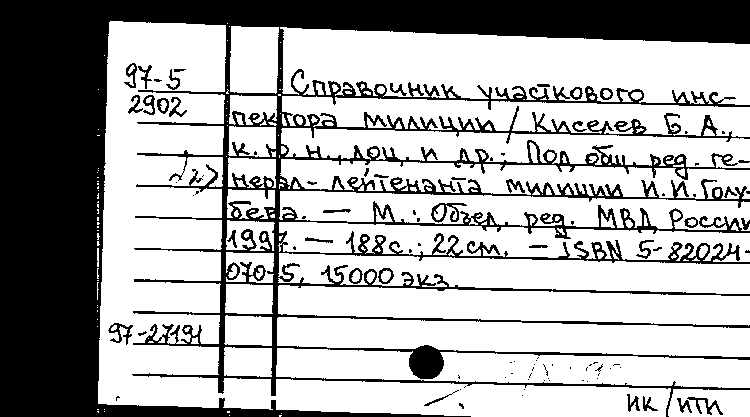 97-5
2902
Справочник участкового инс-
пектора милиции / Киселев Б. А.,
к. ю. н., доц. и др.; Под общ. ред. ге-
нерал-лейтенанта милиции И.И. Голу-
бева. — М.: Объед. ред. МВД России
1997. — 188с.; 22см. — ISBN 5-82024-
070-5, 15000 экз.
97-27191
ИК / ИТИ